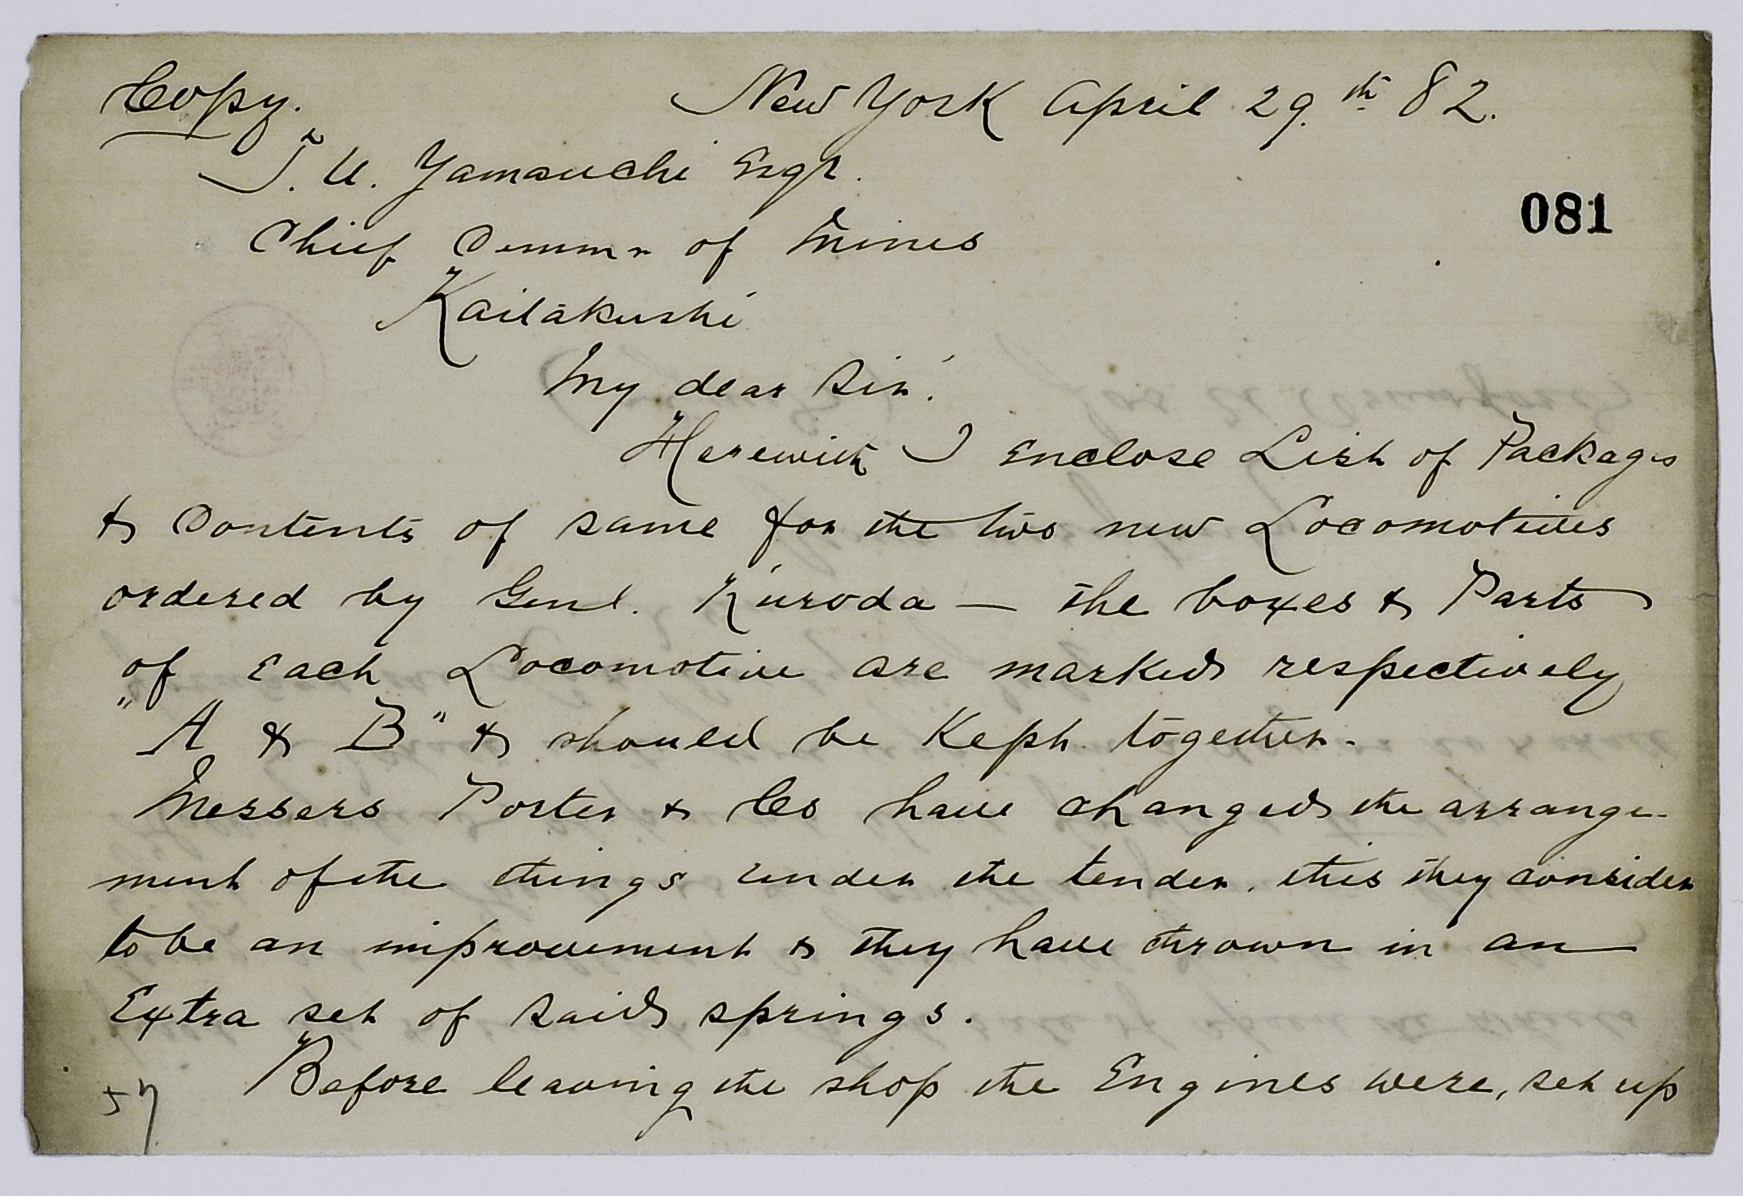 Copy. New York April 29th 82.
T. U. Yamauchi Esqr.
Chief Commr of Mines
081
Kaitakushi
My dear Sir!
Herewith I Enclose List of Packages
& Contents of same for the two new Locomotives
ordered by Genl. Kuroda — the boxes & Parts
of Each Locomotive are marked respectively
"A & B" & should be Kept together.
Messers Porter & Co have changed the arrange-
ment of the things under the tender. this they consider
to be an improvement & they have thrown in an
Extra set of said springs.
Before leaving the shop the Engines were, set up
57